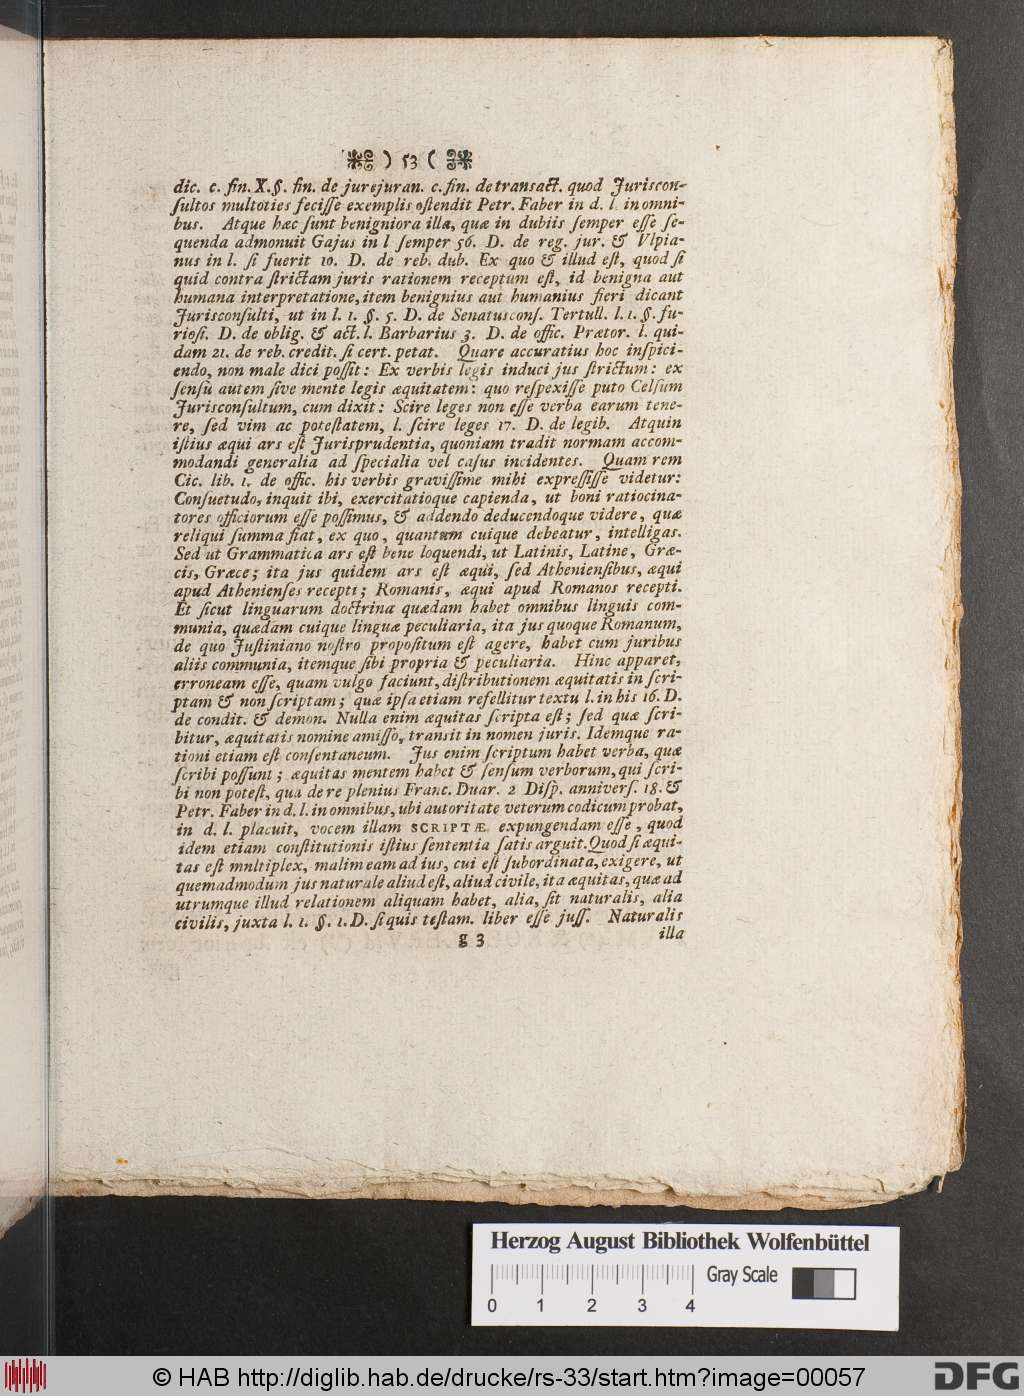 ) 53 (
dic. c. fin. X. §. fin. de jurejuran. c. fin. de transact. quod Juriscon-
ſultos multoties feciſſe exemplis oſtendit Petr. Faber in d. l. in omni-
bus. Atque hæc ſunt benigniora illa, quæ in dubiis ſemper eſſe ſe-
quenda admonuit Gajus in l ſemper 56. D. de reg. jur. & Vlpia-
nus in l. ſi fuerit 10. D. de reb. dub. Ex quo & illud eſt, quod ſi
quid contra ſtrictam juris rationem receptum eſt, id benigna aut
humana interpretatione, item benignius aut humanius fieri dicant
Jurisconſulti, ut in l. 1. §. 5. D. de Senatusconſ. Tertull. l. 1. §. fu-
rioſi. D. de oblig. & act. l. Barbarius 3. D. de offic. Prætor. l. qui-
dam 21. de reb. credit. ſi cert. petat. Quare accuratius hoc inſpici-
endo, non male dici poſſit: Ex verbis legis induci jus ſtrictum: ex
ſenſu autem ſive mente legis æquitatem: quo reſpexiſſe puto Celſum
Jurisconſultum, cum dixit: Scire leges non eſſe verba earum tene-
re, ſed vim ac poteſtatem, l. ſcire leges 17. D. de legib. Atquin
iſtius æqui ars eſt Jurisprudentia, quoniam tradit normam accom-
modandi generalia ad ſpecialia vel caſus incidentes. Quam rem
Cic. lib. 1. de offic. his verbis graviſſime mihi expreſſiſſe videtur:
Conſuetudo, inquit ibi, exercitatioque capienda, ut boni ratiocina-
tores officiorum eſſe poſſimus, & addendo deducendoque videre, quæ
reliqui ſumma fiat, ex quo, quantum cuique debeatur, intelligas.
Sed ut Grammatica ars eſt bene loquendi, ut Latinis, Latine, Græ-
cis, Græce; ita jus quidem ars eſt æqui, ſed Athenienſibus, æqui
apud Athenienſes recepti; Romanis, æqui apud Romanos recepti.
Et ſicut linguarum doctrina quædam habet omnibus linguis com-
munia, quædam cuique linguæ peculiaria, ita jus quoque Romanum,
de quo Juſtiniano noſtro propoſitum eſt agere, habet cum juribus
aliis communia, itemque ſibi propria & peculiaria. Hinc apparet,
erroneam eſſe, quam vulgo faciunt, diſtributionem æquitatis in ſcri-
ptam & non ſcriptam; quæ ipſa etiam refellitur textu l. in his 16. D.
de condit. & demon. Nulla enim æquitas ſcripta eſt; ſed quæ ſcri-
bitur, æquitatis nomine amiſſo, transit in nomen juris. Idemque ra-
tioni etiam eſt conſentaneum. Jus enim ſcriptum habet verba, quæ
ſcribi poſſunt; æquitas mentem habet & ſenſum verborum, qui ſcri-
bi non poteſt, qua de re plenius Franc. Duar. 2 Diſp. anniverſ. 18. &
Petr. Faber in d. l. in omnibus, ubi autoritate veterum codicum probat,
in d. l. placuit, vocem illam SCRIPTÆ, expungendam eſſe, quod
idem etiam conſtitutionis iſtius ſententia ſatis arguit. Quod ſi æqui-
tas eſt mnltiplex, malim eam ad ius, cui eſt ſubordinata, exigere, ut
quemadmodum jus naturale aliud eſt, aliud civile, ita æquitas, quæ ad
utrumque illud relationem aliquam habet, alia, ſit naturalis, alia
civilis, juxta l. 1. §. 1. D. ſi quis teſtam. liber eſſe juſſ. Naturalis
g 3 illa
Herzog August Bibliothek Wolfenbüttel
Gray Scale
0 1 2 3 4
© HAB http://diglib.hab.de/drucke/rs-33/start.htm?image=00057
DFG